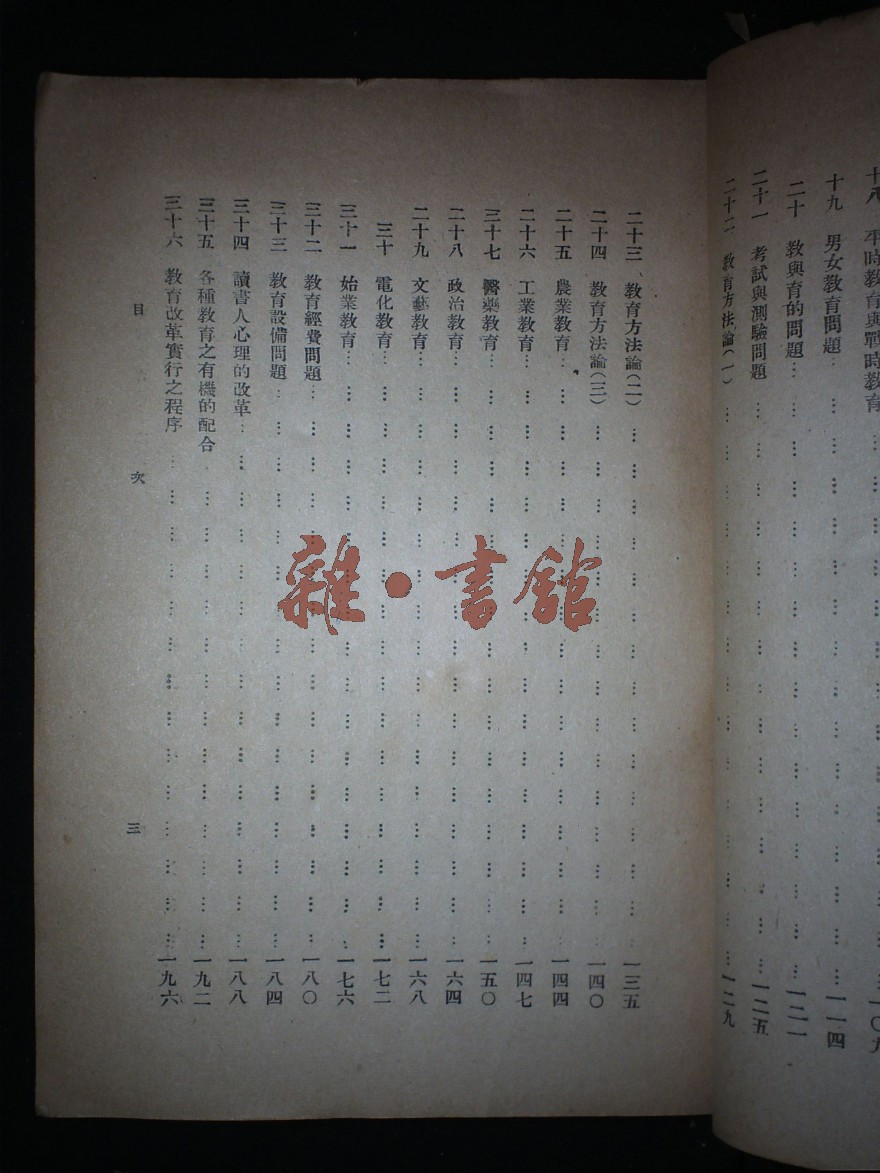 十八　平時教育與戰時教育
十九　男女教育問題……一一四
二十　教與育的問題……一二一
二十一　考試與測驗問題……一二五
二十二　教育方法論(一)……一二九
二十三　教育方法論(二)……一三五
二十四　教育方法論(三)……一四〇
二十五　農業教育……一四四
二十六　工業教育……一四七
三十七　醫藥教育……一五〇
二十八　政治教育……一六四
二十九　文藝教育……一六八
三十　電化教育……一七二
三十一　始業教育……一七六
三十二　教育經費問題……一八〇
三十三　教育設備問題……一八四
三十四　讀書人心理的改革……一八八
三十五　各種教育之有機的配合……一九二
三十六　教育改革實行之程序……一九六
目　次　三
雜·書館